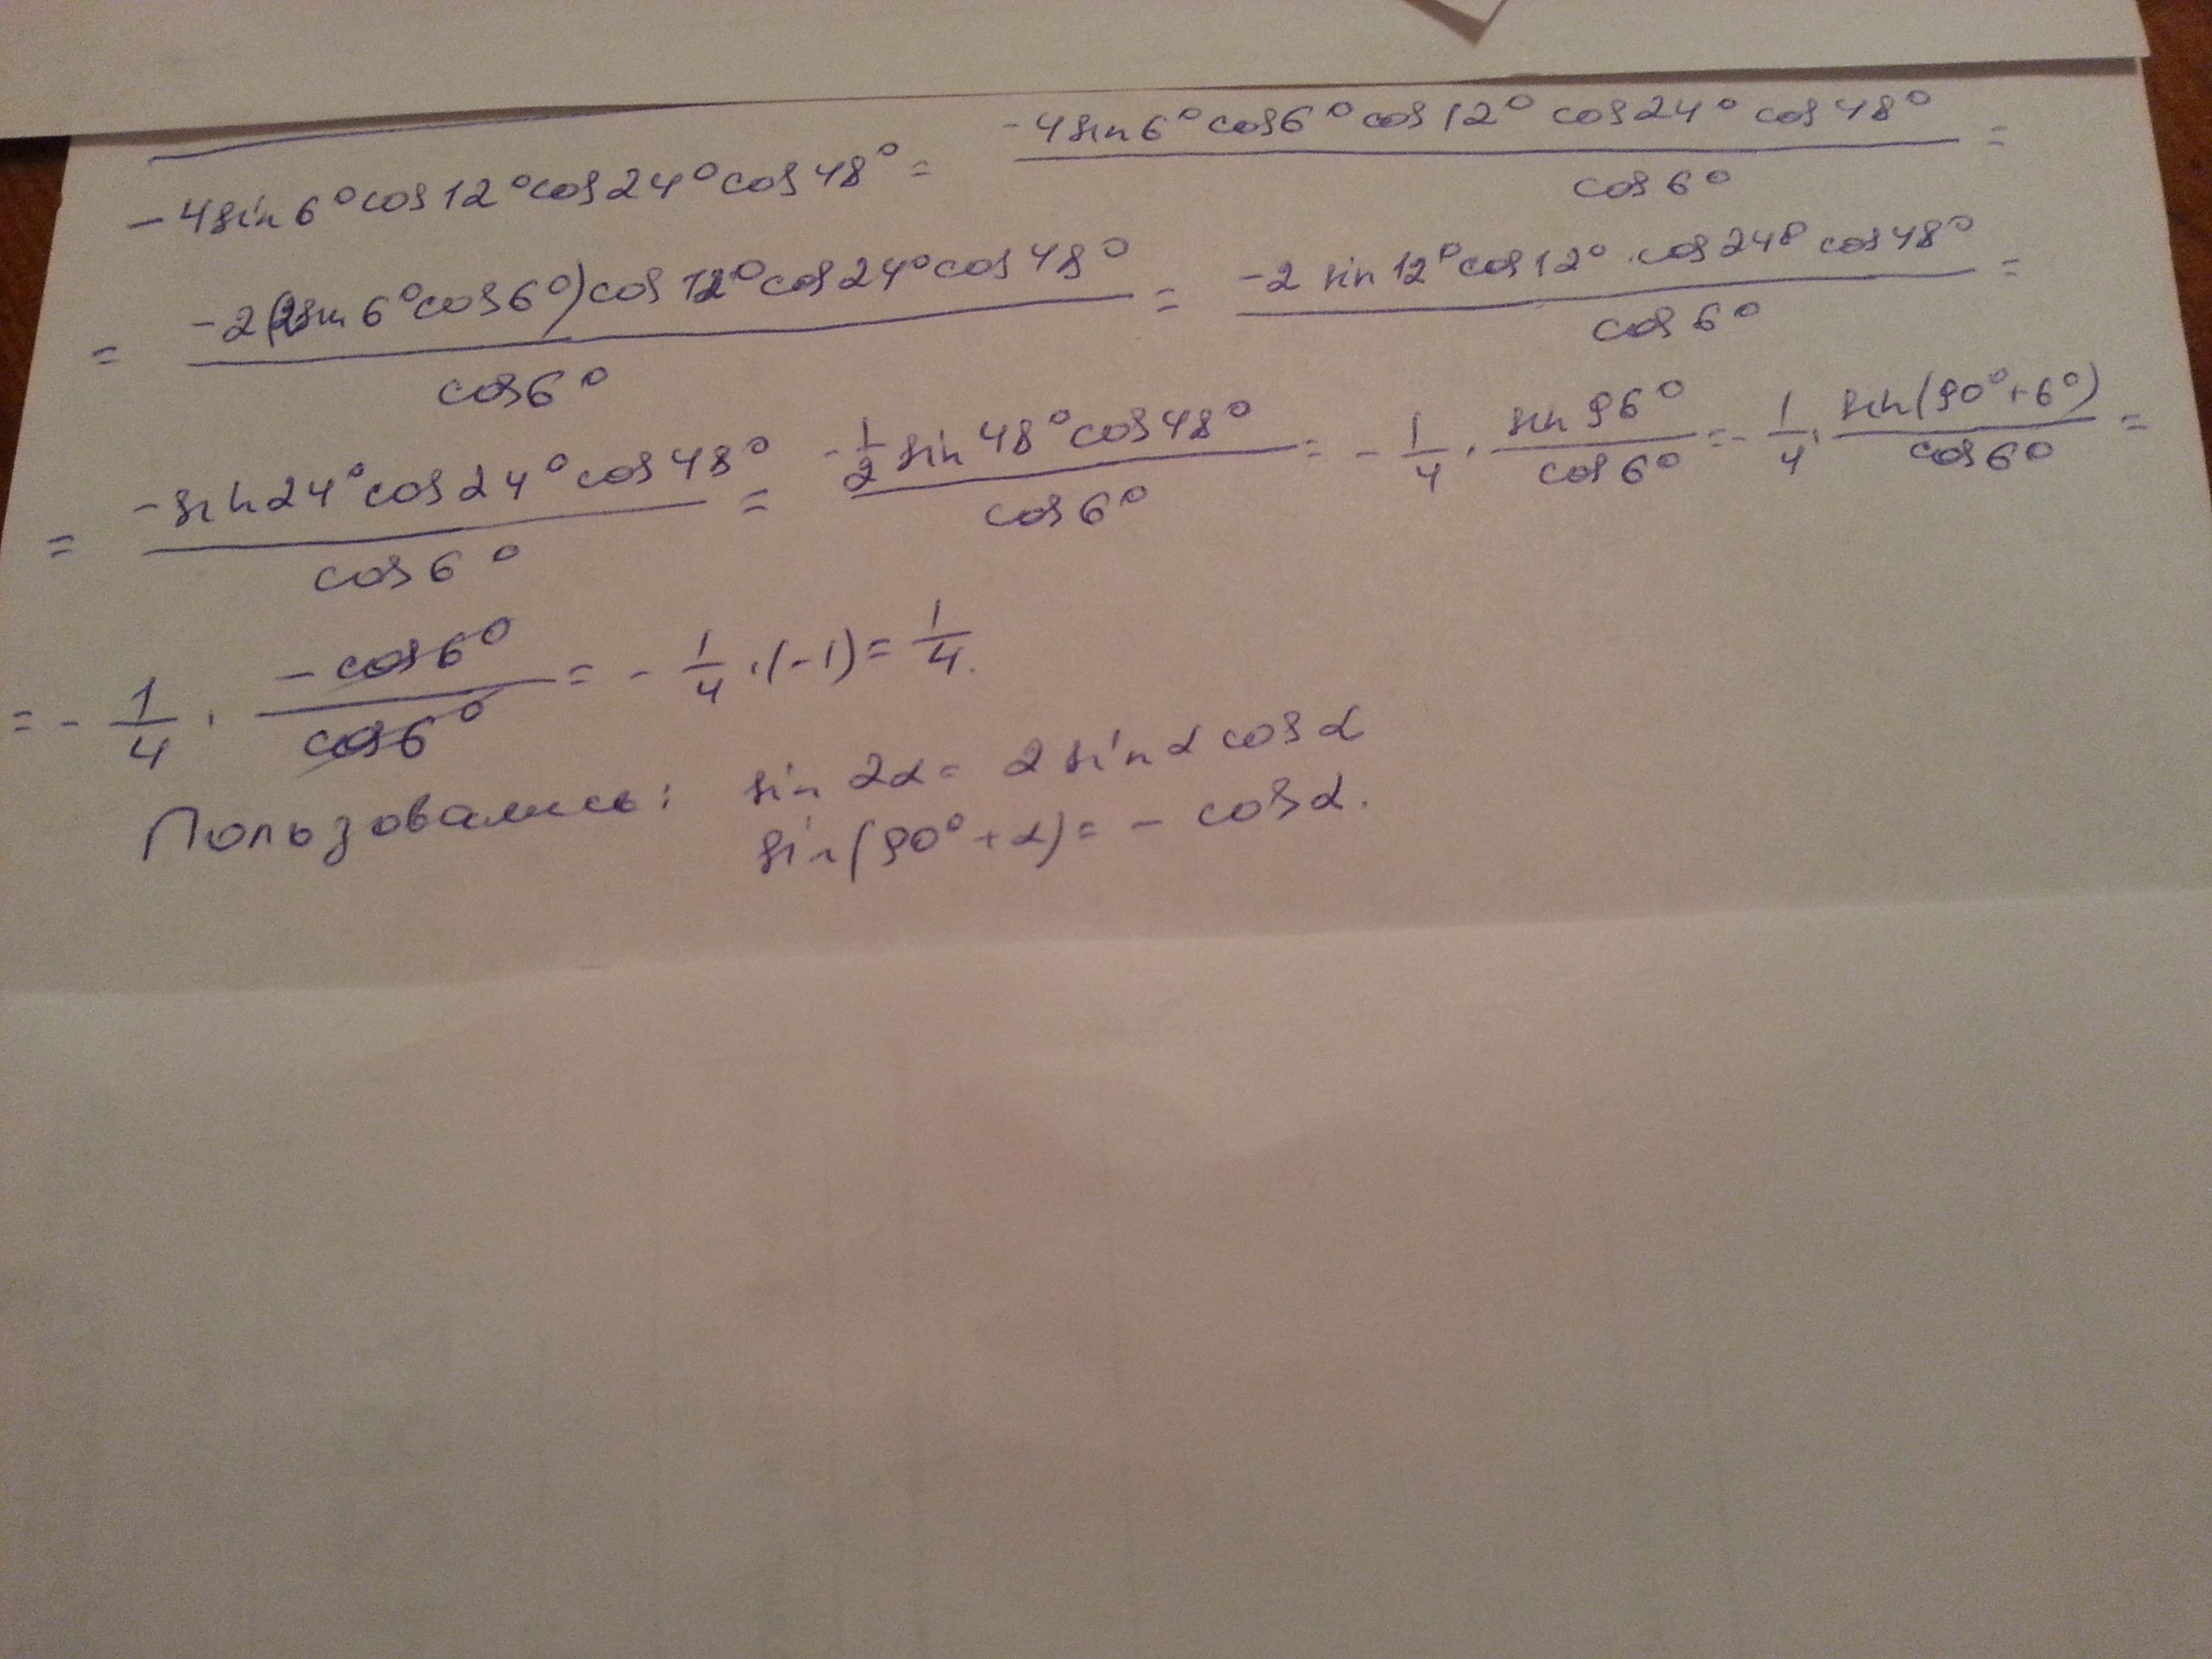 -4sin6°cos12°cos24°cos48° = (-4sin6°cos6°cos12°cos24°cos48°)/(cos6°) =
= (-2(2sin6°cos6°)cos12°cos24°cos48°)/(cos6°) = (-2sin12°cos12°·cos24°cos48°)/(cos6°) =
= (-sin24°cos24°cos48°)/(cos6°) = (-1/2 sin48°cos48°)/(cos6°) = -1/4 · (sin96°)/(cos6°) = -1/4 · (sin(90°+6°))/(cos6°) =
= -1/4 · (-cos6°)/(cos6°) = -1/4 · (-1) = 1/4.
Пользовались: sin2α = 2sinα cosα
sin(90°+α) = -cosα.